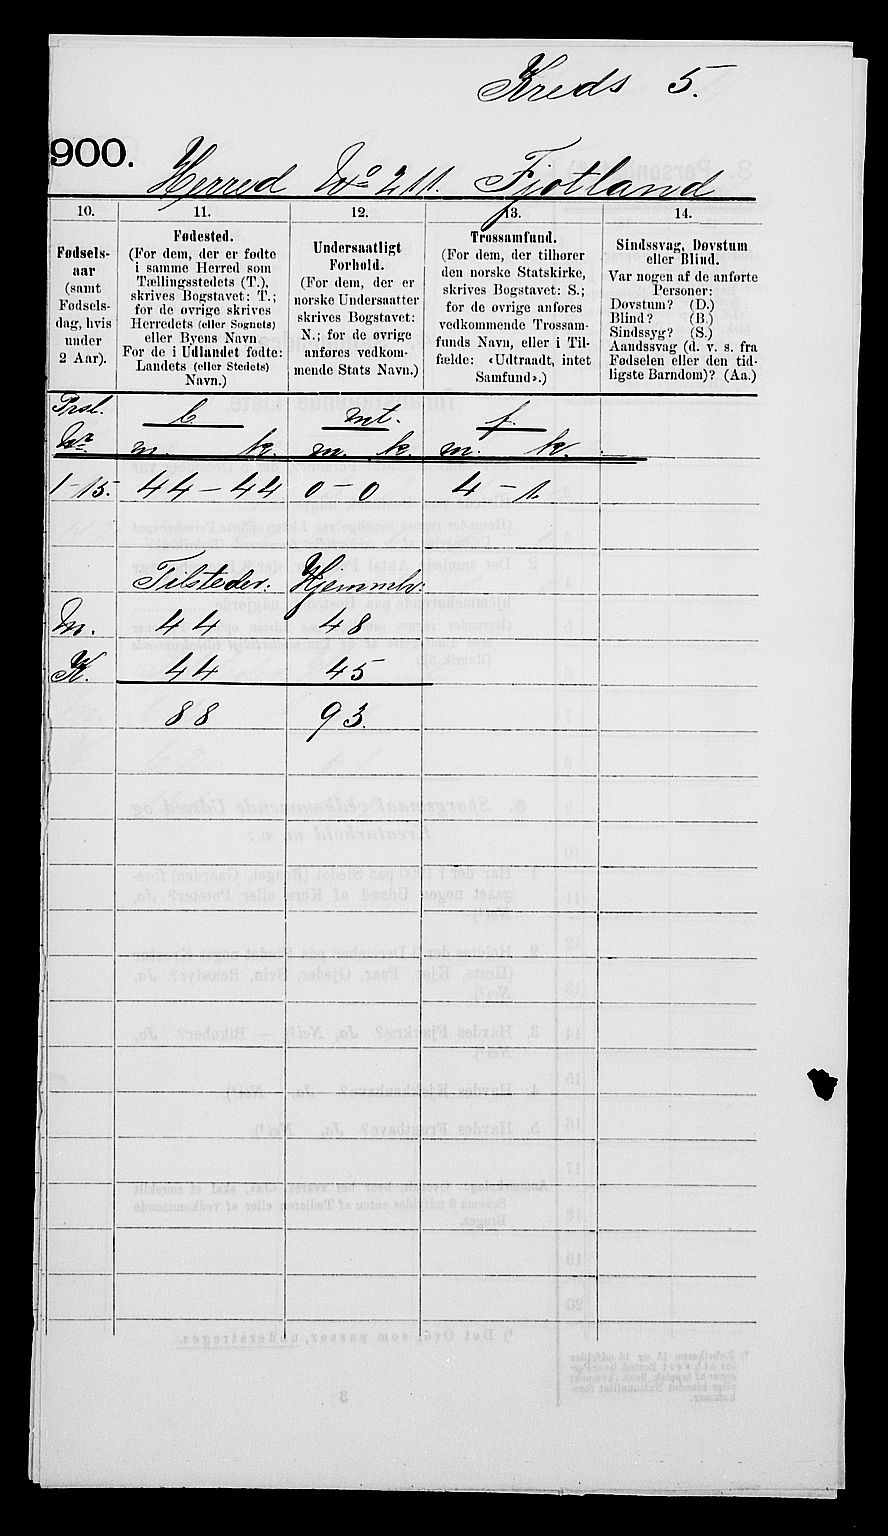 Kreds 5.
900.
Herred No 211. Fjotland
10.
Fødsels-
aar
(samt
Fødsels-
dag, hvis
under
2 Aar).
11.
Fødested.
(For dem, der er fødte
i samme Herred som
Tællingsstedets (T.),
skrives Bogstavet: T.;
for de øvrige skrives
Herredets (eller Sognets)
eller Byens Navn
For de i Udlandet fødte:
Landets (eller Stedets)
Navn.)
12.
Undersaatligt
Forhold.
(For dem, der er
norske Undersaatter
skrives Bogstavet:
N.; for de øvrige
anføres vedkom-
mende Stats Navn.)
13.
Trossamfund.
(For dem, der tilhører
den norske Statskirke,
skrives Bogstavet: S.;
for de øvrige anføres
vedkommende Trossam-
funds Navn, eller i Til-
fælde: «Udtraadt, intet
Samfund».)
14.
Sindssvag, Døvstum
eller Blind.
Var nogen af de anførte
Personer:
Døvstum? (D.)
Blind? (B.)
Sindssyg? (S.)
Aandssvag (d. v. s. fra
Fødselen eller den tid-
ligste Barndom)? (Aa.)
Prsl. b. mt. f.
Nr. m. k. m. k. m. k.
1-15. 44-44 0-0 4-1.
Tilsteder: Hjemmh:
M. 44 48
K. 44 45
88 93.